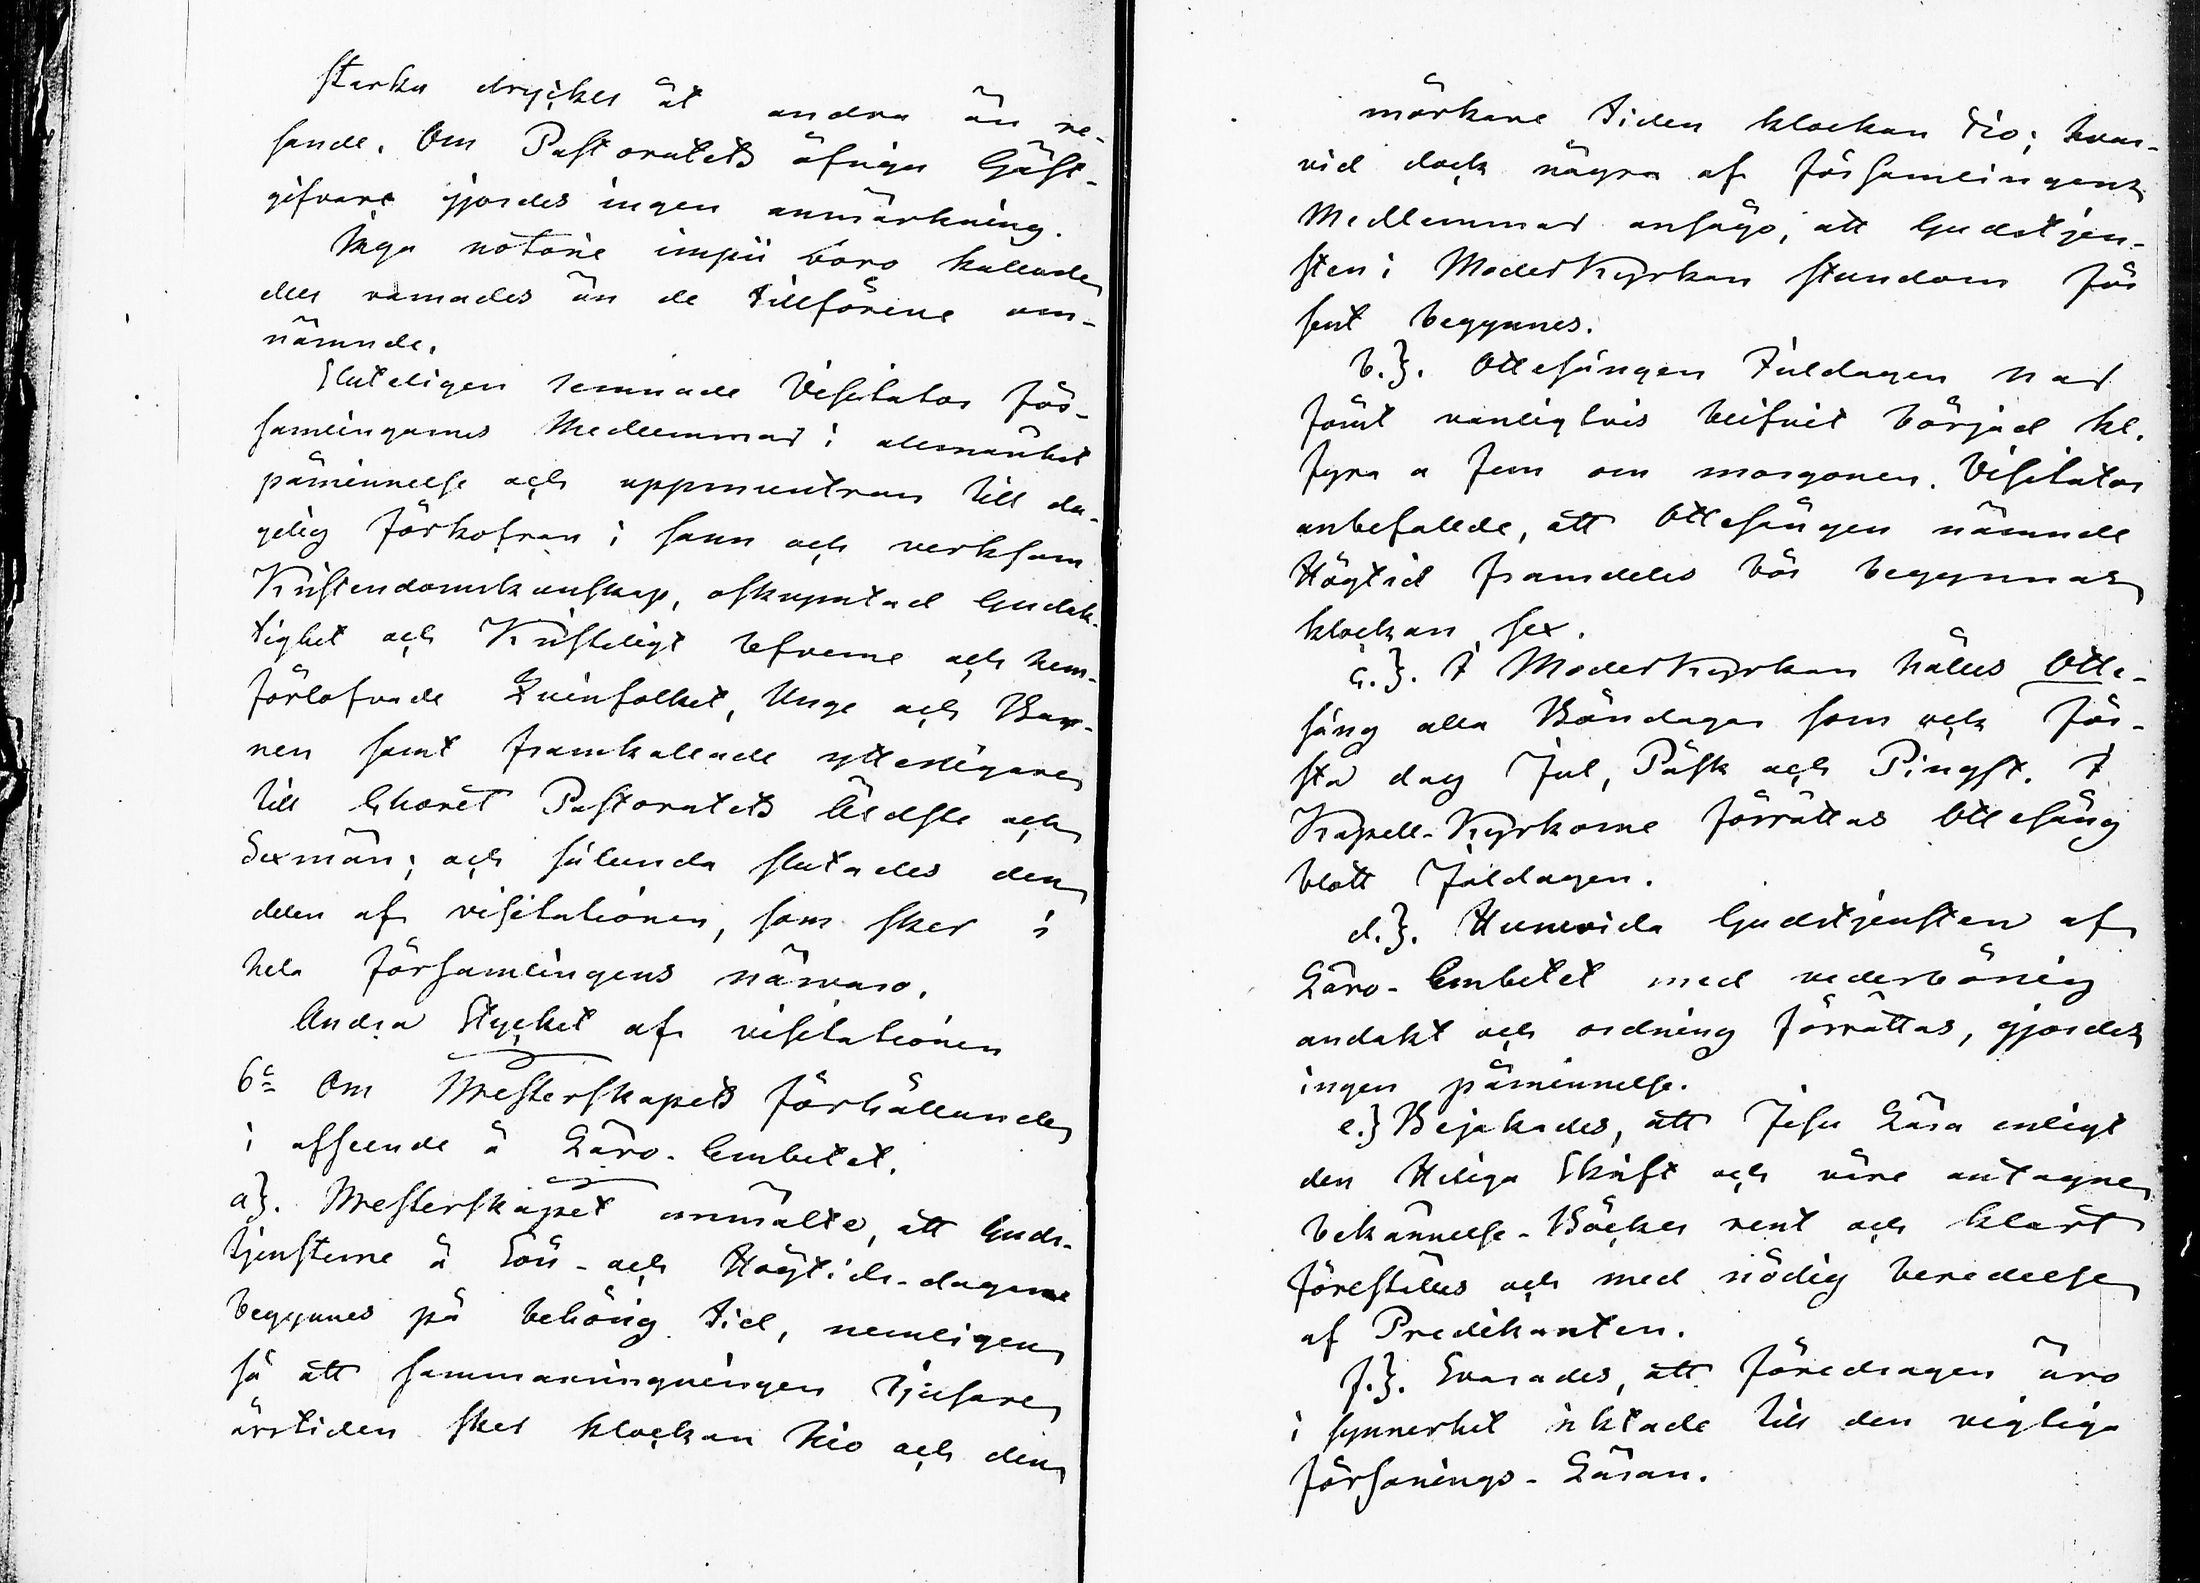 starka drycker åt andra än re-
sande. Om Pastoratets öfriga Gäst-
gifvare gjordes ingen anmärkning.
Inga notorie impii voro kallade
eller ramades än de tillförene om-
nämnde.
Sluteligen lemnade Visitator För-
samlingarnes Medlemmar i allmänhet
påminnelse och uppmuntran till da-
gelig förkofran i sann och verksam
Kristendomskunskap, oskrymtad Gudak-
tighet och Kristeligt lefverne och hem-
förlofvade Qvinfolket, Unge och Bar-
nen samt framkallade ytterligare
till Choret Pastoratets Äldste och
Sexmän; och sålunda slutades den
delen af visitationen, som sker i
hela Församlingens närvaro.
Andra Stycket af visitationen
6c Om Presterskapets förhållande
i afseende å Läro-Embetet.
a}. Presterskapet anmälte, att Guds-
tjensterne å Sön- och Högtids-dagarne
begynnes på behörig tid, nemligen
så att sammanringningen ljusare
årstiden sker klockan nio och den
mörkare tiden klockan tio; hvar-
vid dock några af Församlingens
Medlemmar ansågo, att Gudstjen-
sten i Moderkyrkan stundom för
sent begynnes.
b.}. Ottesången Juldagen har
förut vanligtvis blifvit börjad kl.
fyra a fem om morgonen. Visitator
anbefallde, att Ottesången nämnde
Högtid framdeles bör begynnas
klockan sex.
c.}. I Moderkyrkan hålles Otte-
sång alla Böndagar som ock för-
sta dag Jul, Påsk och Pingst. I
Kapell-Kyrkorne förrättas Ottesång
blott Juldagen.
d.}. Huruvida Gudstjensten af
Läro-Embetet med vederbörlig
andakt och ordning förrättas, gjordes
ingen påminnelse.
e.} Bejakades, att Jesu Lära enligt
den Heliga Skrift och våre antagne
bekännelse-Böcker rent och klart
förestälts och med nödig beredelse
af Predikanten.
f.}. Svarades, att föredragen äro
i synnerhet riktade till den vigtiga
försonings-Läran.